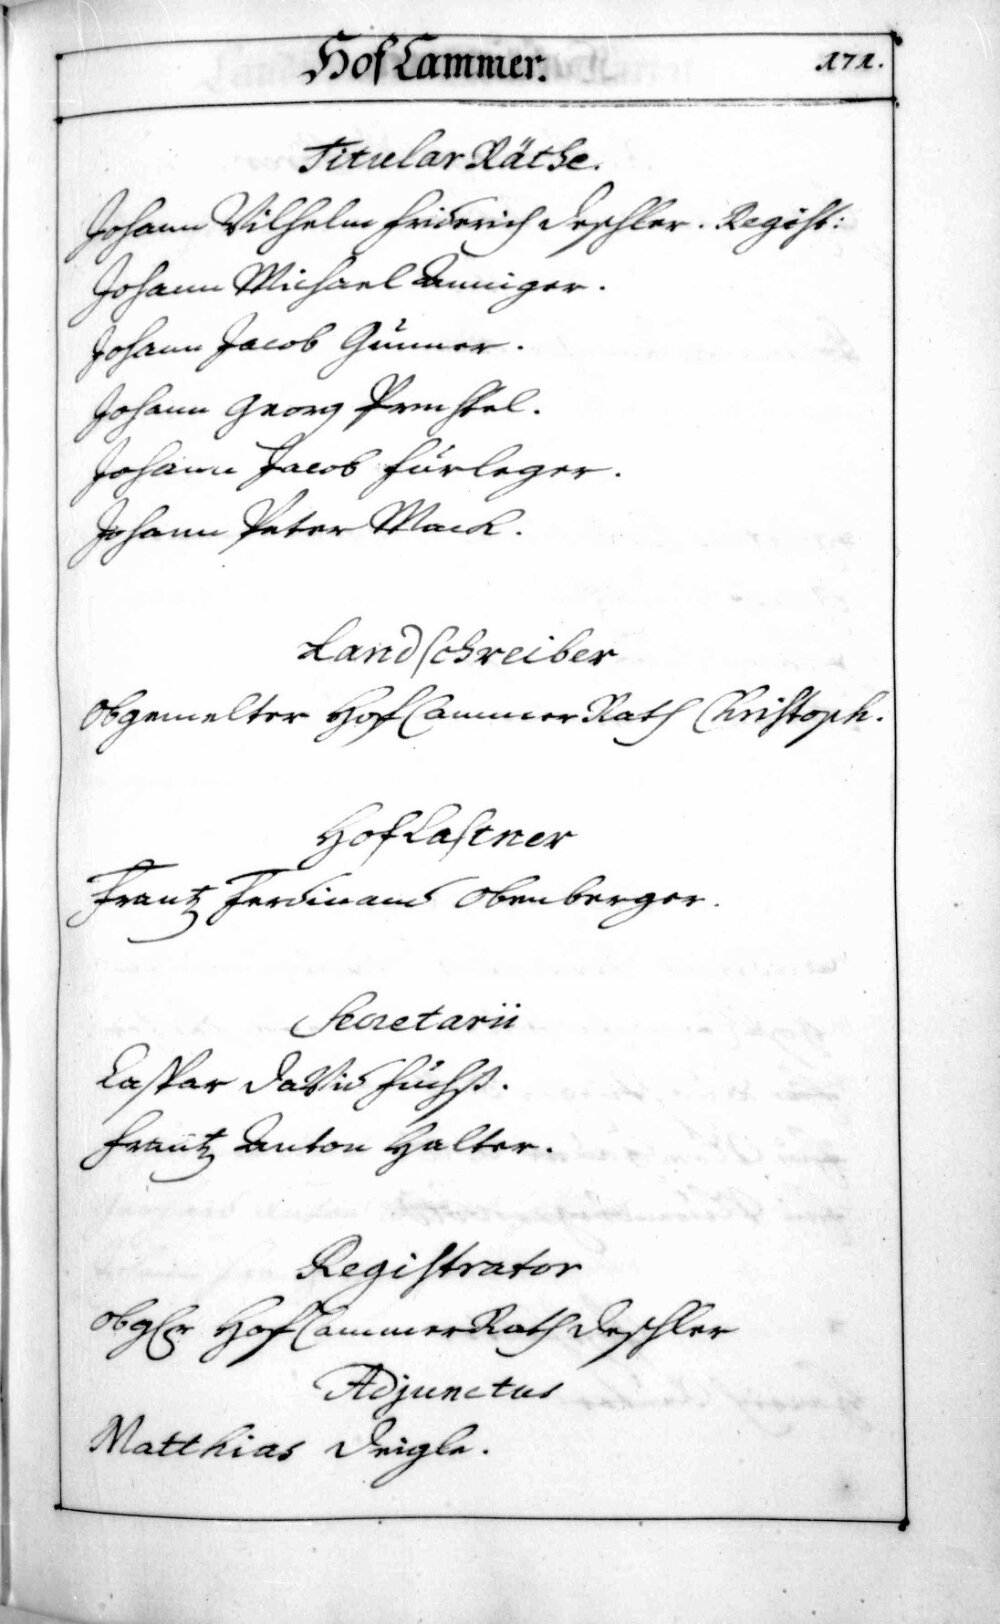 Hof Cammer.
171.
Titular Räthe.
Johann Wilhelm Friderich Deschler. Regist:
Johann Michael Anniger.
Johann Jacob Günner.
Johann Georg Prechtel.
Johann Jacob Fürleger.
Johann Peter Mack.
Landschreiber
Obgemelter Hof Cammer Rath Christoph.
Hof Castner
Frantz Ferdinand Obenberger.
Secretarii
Caspar David Füchß.
Frantz Anton Halter.
Registrator
Obgſr Hof Cammer Rath Deschler
Adjunctus
Matthias Deigle.